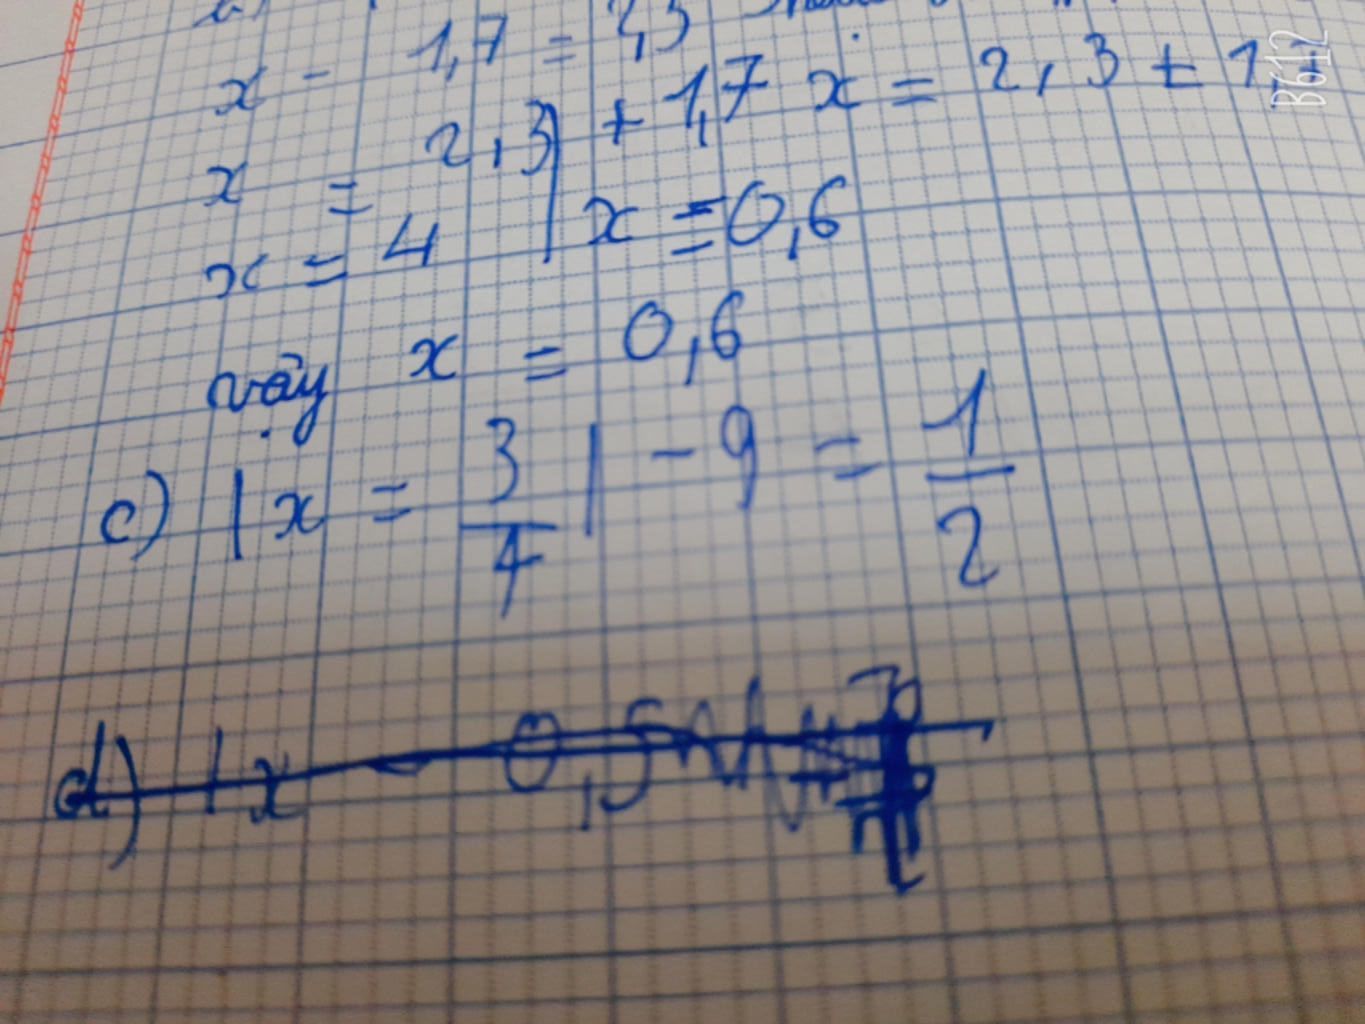 x - 1,7 = 2,3
x = 2,3 + 1,7 x = 2,3 + 1,7
x = 4 | x = 0,6
vậy x = 0,6
c) |x = 3/4| - 9 = 1/2
d) |x - 0,5
B612